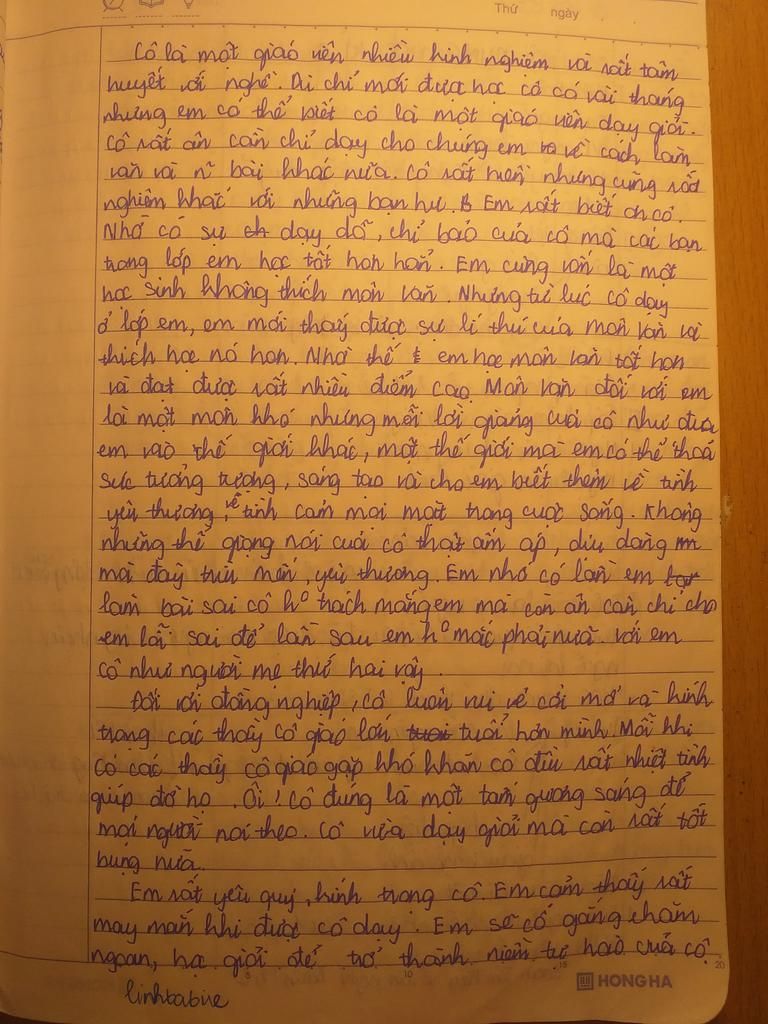 Thứ ngày
Cô là một giáo viên nhiều kinh nghiệm và rất tâm
huyết với nghề. Dù chỉ mới được học cô có vài tháng
nhưng em có thể biết cô là một giáo viên dạy giỏi.
Cô rất ân cần chỉ dạy cho chúng em về cách làm
văn và n~ bài khác nữa. Cô rất hiền nhưng cũng rất
nghiêm khắc với những bạn hư. Em rất biết ơn cô.
Nhờ có sự dạy dỗ, chỉ bảo của cô mà các bạn
trong lớp em học tốt hơn hẳn. Em cũng vốn là một
học sinh không thích môn văn. Nhưng từ lúc cô dạy
ở lớp em, em mới thấy được sự lí thú của môn văn và
thích học nó hơn. Nhờ thế em học môn văn tốt hơn
và đạt được rất nhiều điểm cao. Môn văn đối với em
là một môn khó nhưng mỗi lời giảng của cô như đưa
em vào thế giới khác, một thế giới mà em có thể thoả
sức tưởng tượng, sáng tạo và cho em biết thêm về tình
yêu thương, về tình cảm mọi mặt trong cuộc sống. Không
những thế giọng nói của cô thật ấm áp, dịu dàng
mà đầy trìu mến, yêu thương. Em nhớ có lần em
làm bài sai cô h° trách mắng em mà còn ân cần chỉ cho
em lỗi sai để lần sau em h° mắc phải nữa. với em
cô như người mẹ thứ hai vậy.
Đối với đồng nghiệp, cô luôn vui vẻ cởi mở và kính
trọng các thầy cô giáo lớn tuổi hơn mình. Mỗi khi
có các thầy cô giáo gặp khó khăn cô đều rất nhiệt tình
giúp đỡ họ. Ôi! Cô đúng là một tấm gương sáng để
mọi người noi theo. Cô vừa dạy giỏi mà còn rất tốt
bụng nữa.
Em rất yêu quý, kính trọng cô. Em cảm thấy rất
may mắn khi được cô dạy. Em sẽ cố gắng chăm
ngoan, học giỏi để trở thành niềm tự hào của cô
5 10 15 20
HONG HA
linhbabie